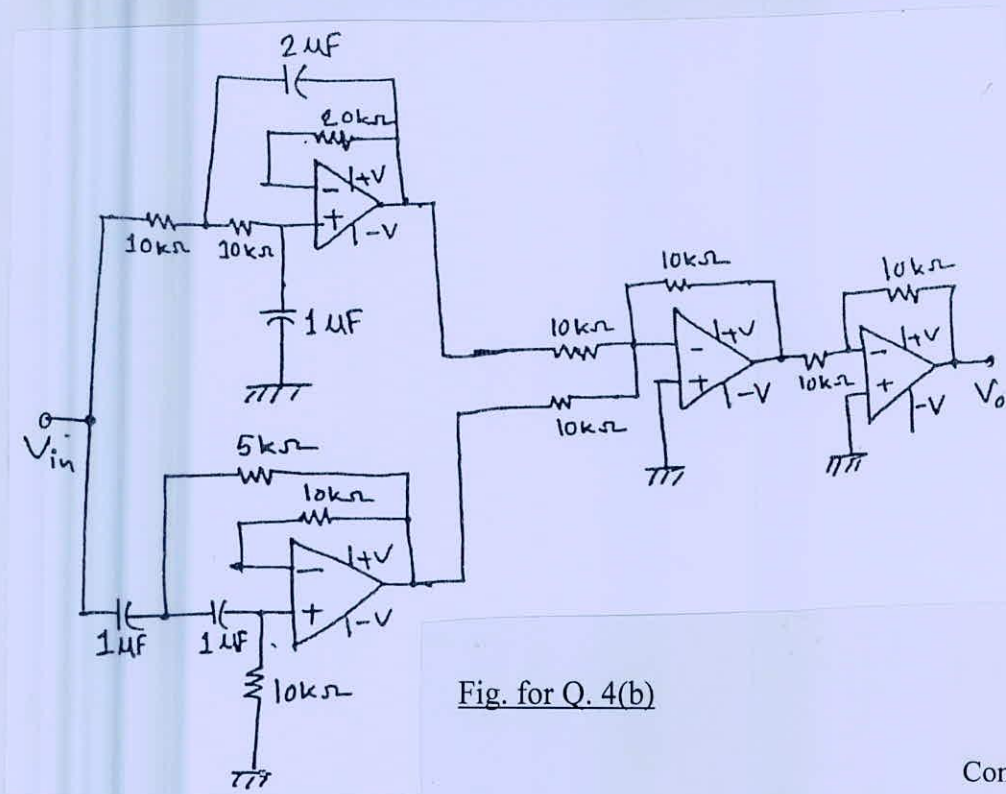 2 μF
20kΩ
+V
-
+
-V
10kΩ
10kΩ
1 μF
Vin
5kΩ
10kΩ
+V
-
+
-V
1μF
1μF
10kΩ
10kΩ
10kΩ
+V
-
+
-V
10kΩ
10kΩ
10kΩ
+V
-
+
-V
Vo
Fig. for Q. 4(b)
Con